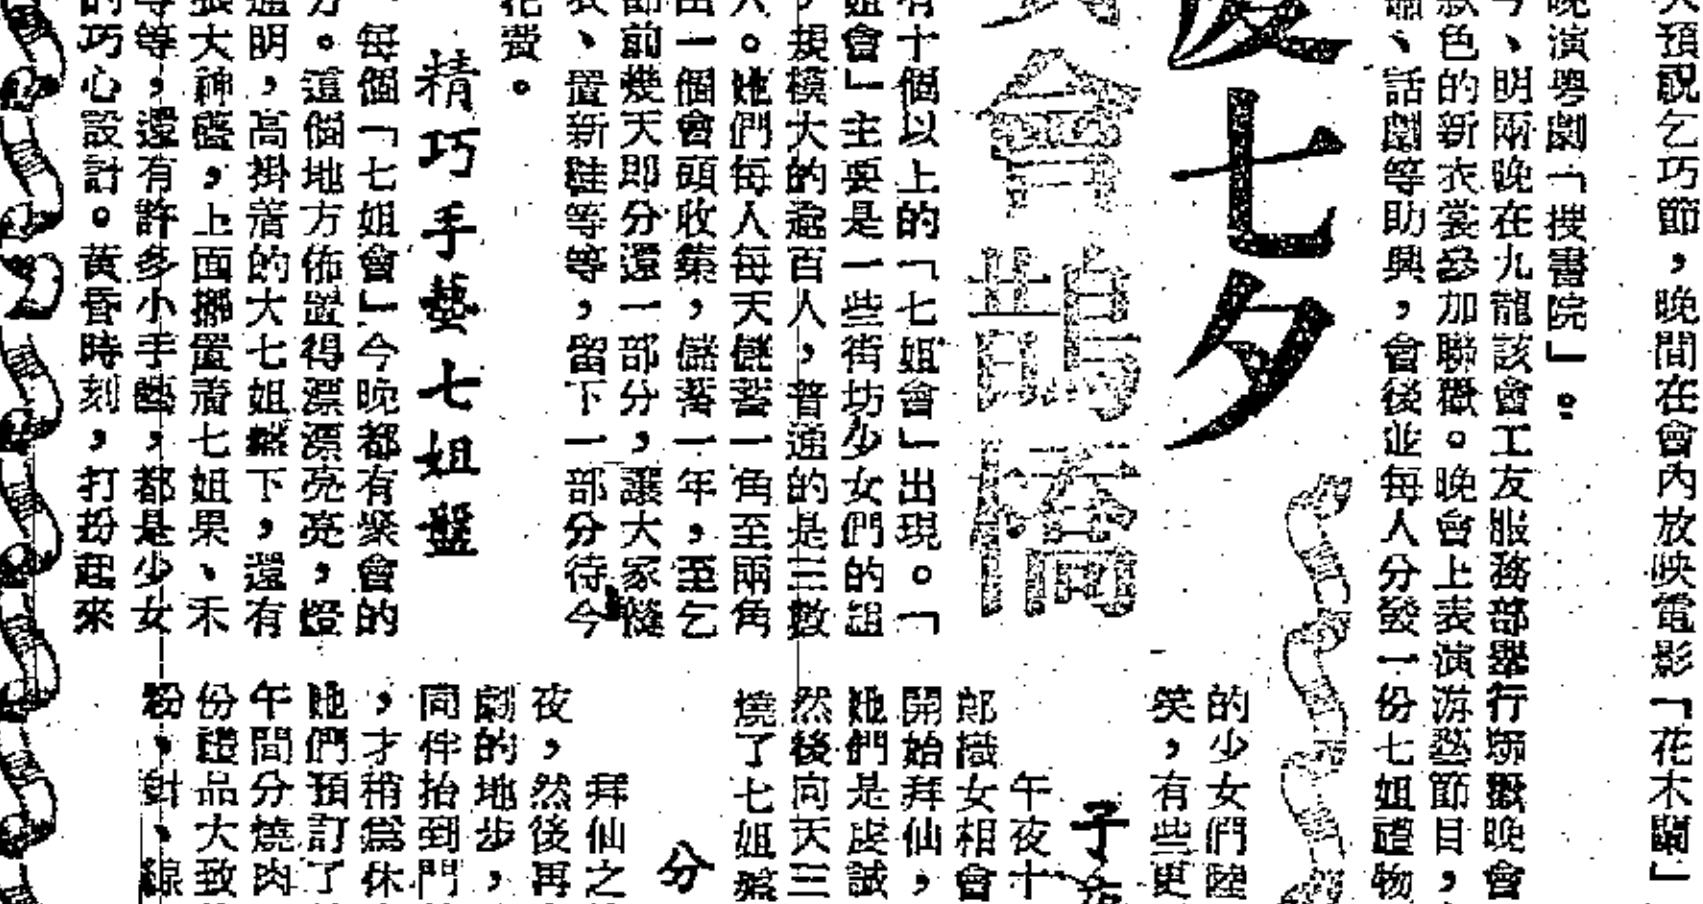 預祝乞巧節，晚間在會內放映電影「花木蘭」
晚演粵劇「搜書院」。
今、明兩晚在九龍該會工友服務部舉行聯歡晚會
款色的新衣裳參加聯歡。晚會上表演游藝節目，
、話劇等助興，會後並每人分發一份七姐禮物
慶七夕
會鵲橋
有十個以上的「七姐會」出現。「
姐會」主要是一些街坊少女們的組
，規模大的逾百人，普通的是三數
人。她們每人每天儲蓄一角至兩角
出一個會頭收集，儲蓄一年，至乞
節前幾天即分還一部分，讓大家縫
衣、置新鞋等等，留下一部分待今
花費。
精巧手藝七姐盤
每個「七姐會」今晚都有聚會的
方。這個地方佈置得漂漂亮亮，燈
通明，高掛着的大七姐盤下，還有
張大神檯，上面擺置着七姐果、禾
等等，還有許多小手藝，都是少女
的巧心設計。黃昏時刻，打扮起來
的少女們陸
笑，有些更
子夜
午夜十
郎織女相會
開始拜仙，
她們是虔誠
然後向天三
燒了七姐盤
分
拜仙之
夜，然後再
劇的地步，
同伴抬到門
，才稍為休
她們預訂了
午間分燒肉
份禮品大致
粉，針、線